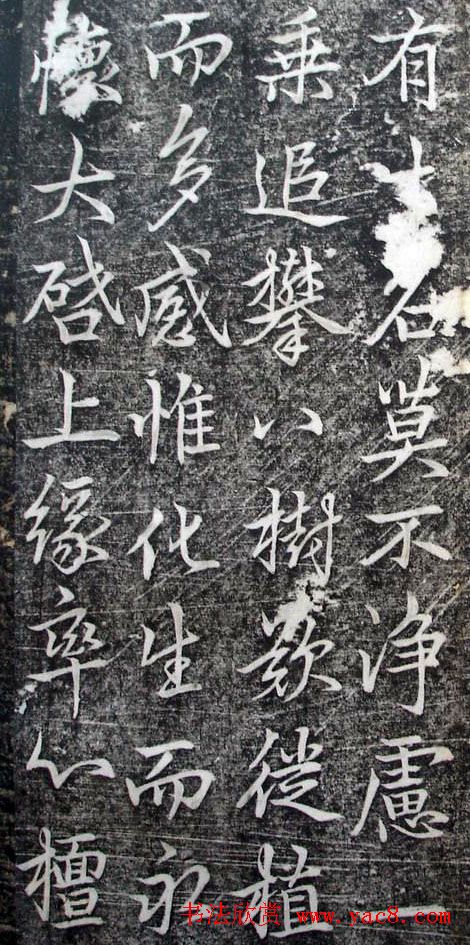 有石莫不浄慮一
乘追攀八樹歎從植
而多感惟化生而永
懷大啓上緣率心檀
书法欣赏 www.yac8.com